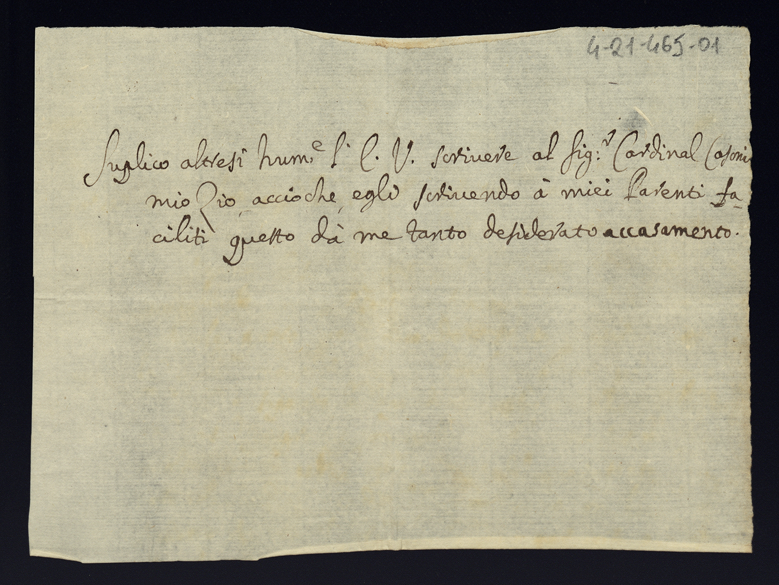 4-21-465-01
Suplico altresi hum.e l' E. V. scrivere al Sig.r Cardinal Casoni
mio Zio, accioche egli scrivendo à miei Parenti fa-
ciliti questo dà me tanto desiderato accasamento.